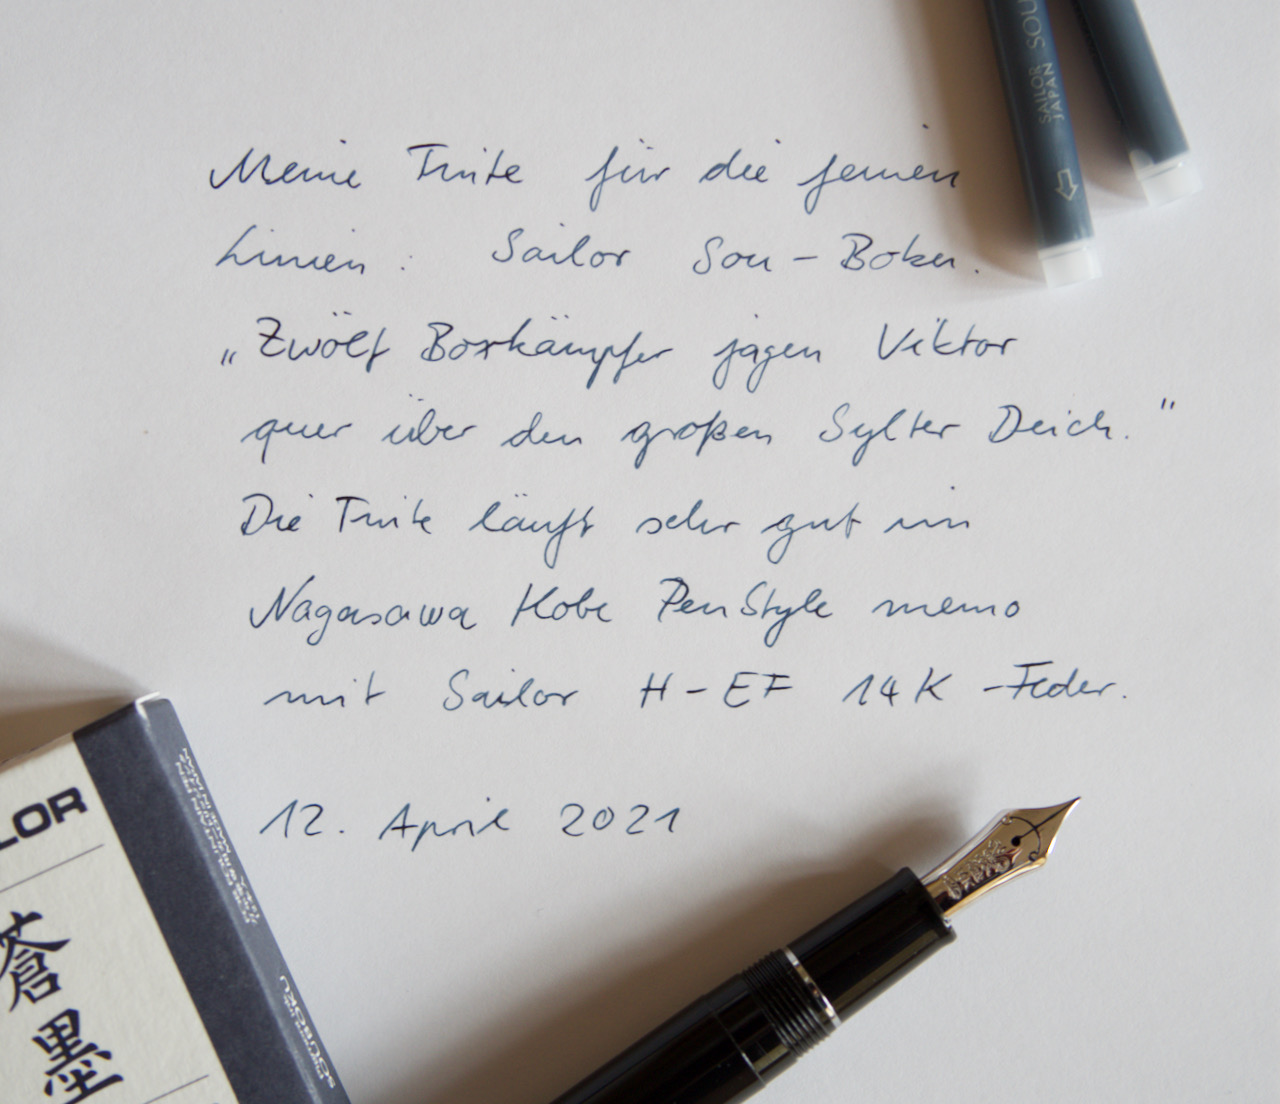 SAILOR
JAPAN
SOU
Meine Tinte für die feinen
Linien: Sailor Sou-Boku.
„Zwölf Boxkämpfer jagen Viktor
quer über den großen Sylter Deich."
Die Tinte läuft sehr gut im
Nagasawa Kobe PenStyle memo
mit Sailor H-EF 14K-Feder.
12. April 2021
LOR
蒼
墨
SOUBOKU